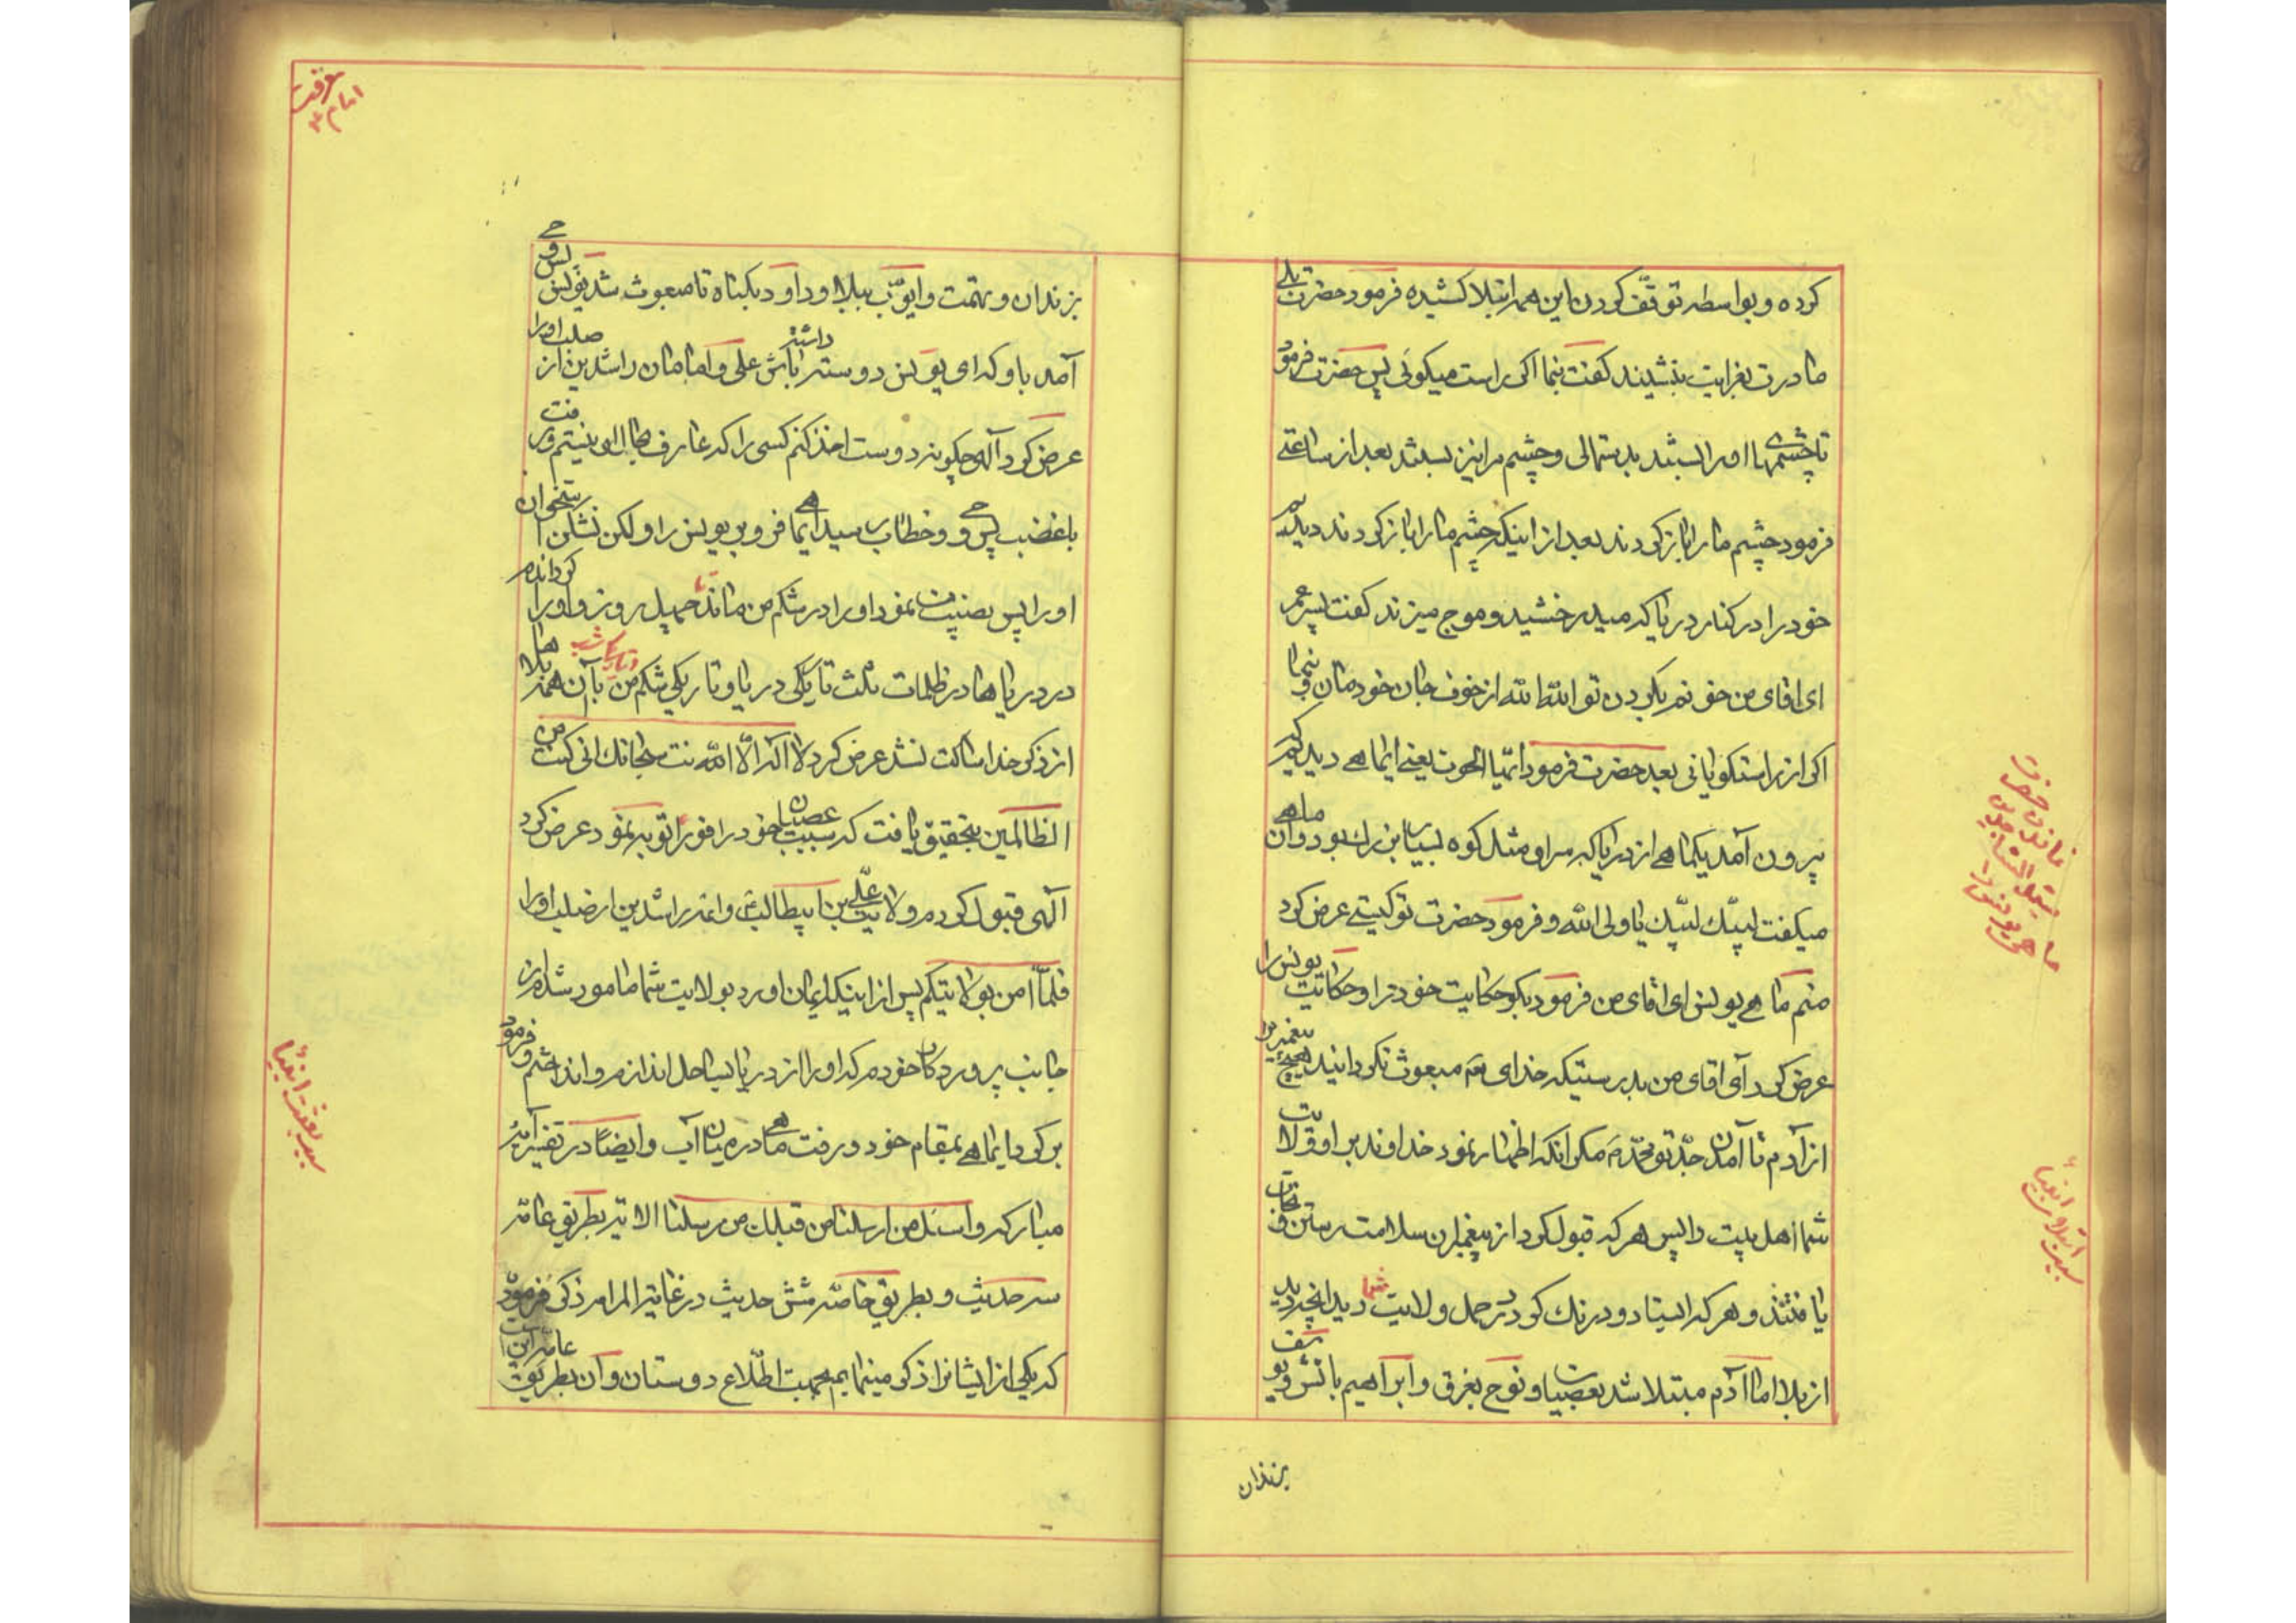 کرده و بواسطه توقف کردن این همه ابتلا کشیده فرمود حضرت بلی
مادرت بعزایت بنشیند گفت بنما اگر راست میگوئی پس حضرت فرمود
تا چشمهای او را ببستند بدستمالی و چشم مرا نیز ببستند بعد از ساعتی
فرمود چشم ما را باز کردند بعد از اینکه چشم ما را باز کردند دیدیم
خود را در کنار دریا که میدرخشید و موج میزند گفت پسر عمر
ای اقای من خونم بگردن تو الله الله از خوف جان خودمان و بنما
اگر از راستگویانی بعد حضرت فرمود ایتها الحوت یعنی ایماهی دیدیم که
بیرون آمد یکماهی از دریا که سر او مثل کوه بسیار بزرك بود و ان ماهی
میگفت لبیك لبیك یا ولی الله و فرمود حضرت تو کیستی عرض کرد
منم ماهی یونس ای اقای من فرمود بگو حکایت خود را و حکایت یونس را
عرض کرد آی اقای من بدرستیکه خدای تعم مبعوث نگردانید هیچ پیغمبر را
از آدم تا آمدن جد تو محمد ص مکر انکه اظهار نمود خداوند بر او ولایت
شما اهل بیت را پس هر که قبول کرد از پیغمبران سلامت رستن و نجات
یافتند و هر که ایستاد و درنك کرد در حمل ولایت شما دید انچه دید
از بلا اما آدم مبتلا شد بعصیان و نوح بغرق و ابراهیم باتش و یوسف
بزندان
ماندن حضرت
سید الساجدین
ماهی یونس را
سبب ابتلای انبیاء
معرفت
امام ع
بزندان و تهمت و ایوب ببلا و داود بگناه تا مبعوث شد یونس پس وحی
آمد باو که ای یونس دوست داشته باش علی و امامان راشدین از صلب او را
عرض کرد آلهی چگونه دوست اخذ کنم کسی را که عارف بحال او نیستم و رفت
با غضب پس وحی و خطاب رسید ایماهی فرو بر یونس را و لکن نشکن استخوان
او را پس بصنیت نمود او را در شکم من ماند تا چهل روز و او را گرداندم
در دریاها در ظلمات ثلث تاریکی دریا و تاریکی شکم من و تاریکی شب با آن همه بلاها
از ذکر خدا ساکت نشد عرض کرد لا اله الا الله نت سبحانك انی کنت من
الظالمین بتحقیق یافت که سبب عصیان خود را فوراً توبه نمود عرض کرد
آلهی قبول کردم ولایت علی بن ابیطالب ع و ائمه راشدین از صلب او را
فلما امن بولایتکم پس از اینکه ایمان اورد بولایت شما مامور شدم از
جانب پروردکار خودم که او را از دریا بساحل اندازم و انداختم و فرمود
برگرد ایماهی بمقام خود و رفت ماهی در میان آب و ایضاً در تفسیر آیه
مبارکه و اسئل من ارسلنا من قبلك من رسلنا الایه بطریق عامه
سه حدیث و بطریق خاصه شش حدیث در غایة المرام ذکر فرموده
که یکی از ایشانرا ذکر مینمایم بجهت اطلاع دوستان و آن بطریق عامه است این
سبب بعثت انبیاء